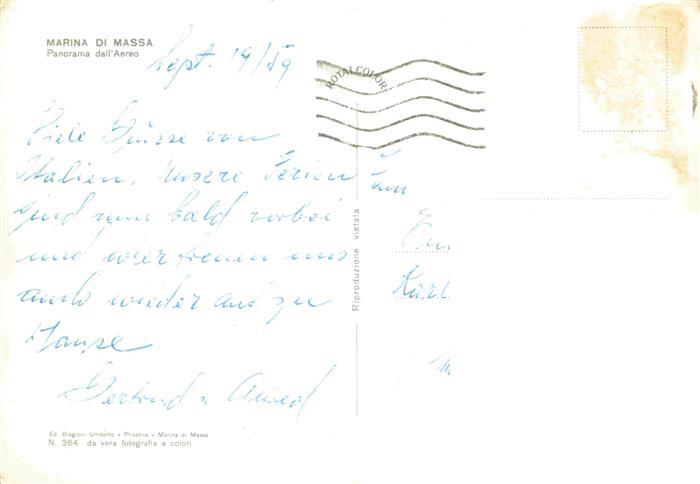 MARINA DI MASSA
Panorama dall'Aereo
Sept. 19/59
ROTALCOLOR
Viele Grüsse von
Italien. Unsere Ferien
sind nun bald vorbei
und wier freuen uns
auch wieder auf zu
Hause
Gertrud u Alfred
Fam
Karl
Riproduzione vietata
Ed. Biagioni Umberto - Privativa - Marina di Massa
N. 364 da vera fotografia a colori